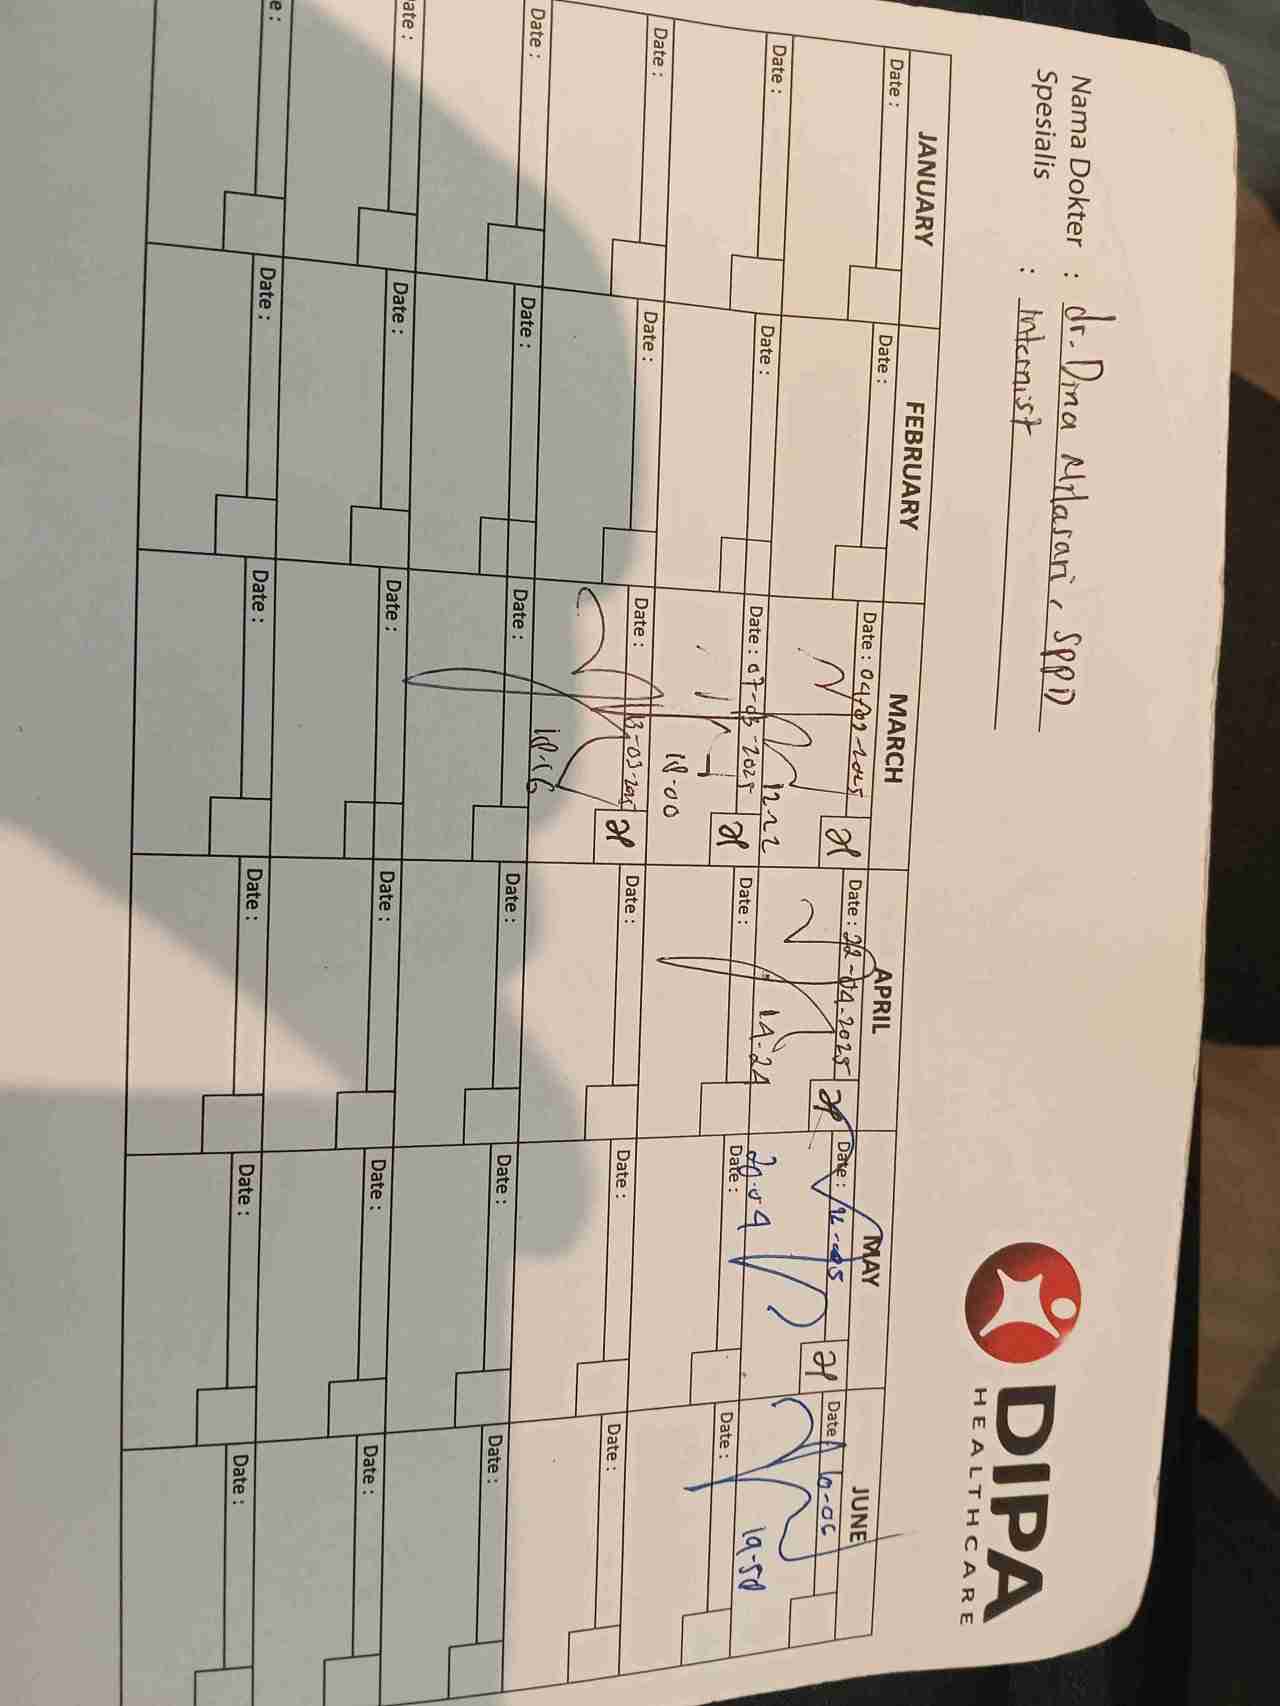 DIPA
HEALTHCARE
Nama Dokter : dr. Dina Nilasari, SPPD
Spesialis : Internist
JANUARY FEBRUARY MARCH APRIL MAY JUNE
Date : Date : Date : 04/03-2025 Date : 22-04-2025 Date : 14-05 Date : 10-06
12.22 14.24 20.04 19.58
Date : Date : Date : 07-03-2025 Date : Date : Date :
18.00
Date : Date : Date : 13-03-2025 Date : Date : Date :
18.16
Date : Date : Date : Date : Date : Date :
Date : Date : Date : Date : Date : Date :
Date : Date : Date : Date : Date : Date :